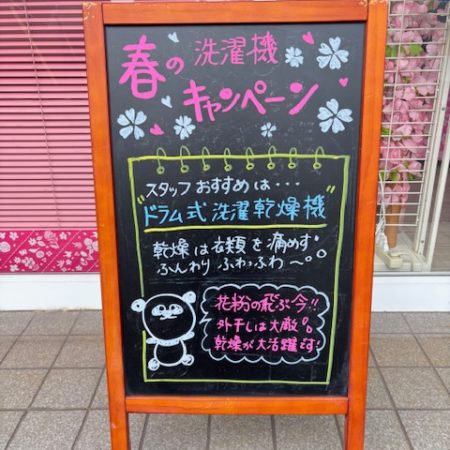 春の洗濯機
キャンペーン
スタッフおすすめは・・・
"ドラム式洗濯乾燥機"
乾燥は衣類を痛めず
ふんわりふわっふわ〜
花粉の飛ぶ今!!
外干しは大敵!
乾燥が大活躍です!